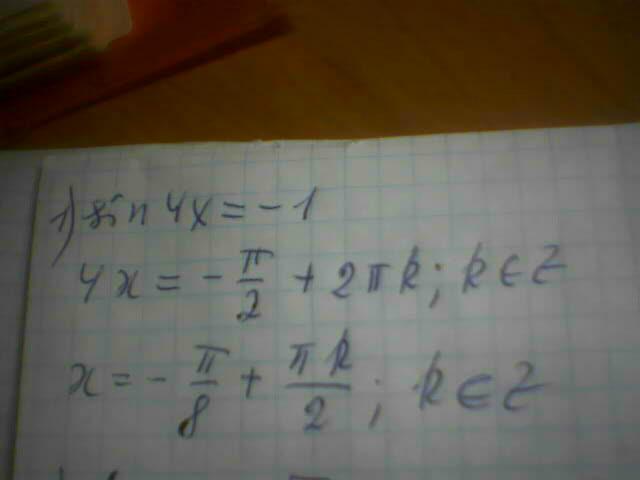 1) sin 4x = -1
4x = -π/2 + 2πk; k ∈ Z
x = -π/8 + πk/2; k ∈ Z